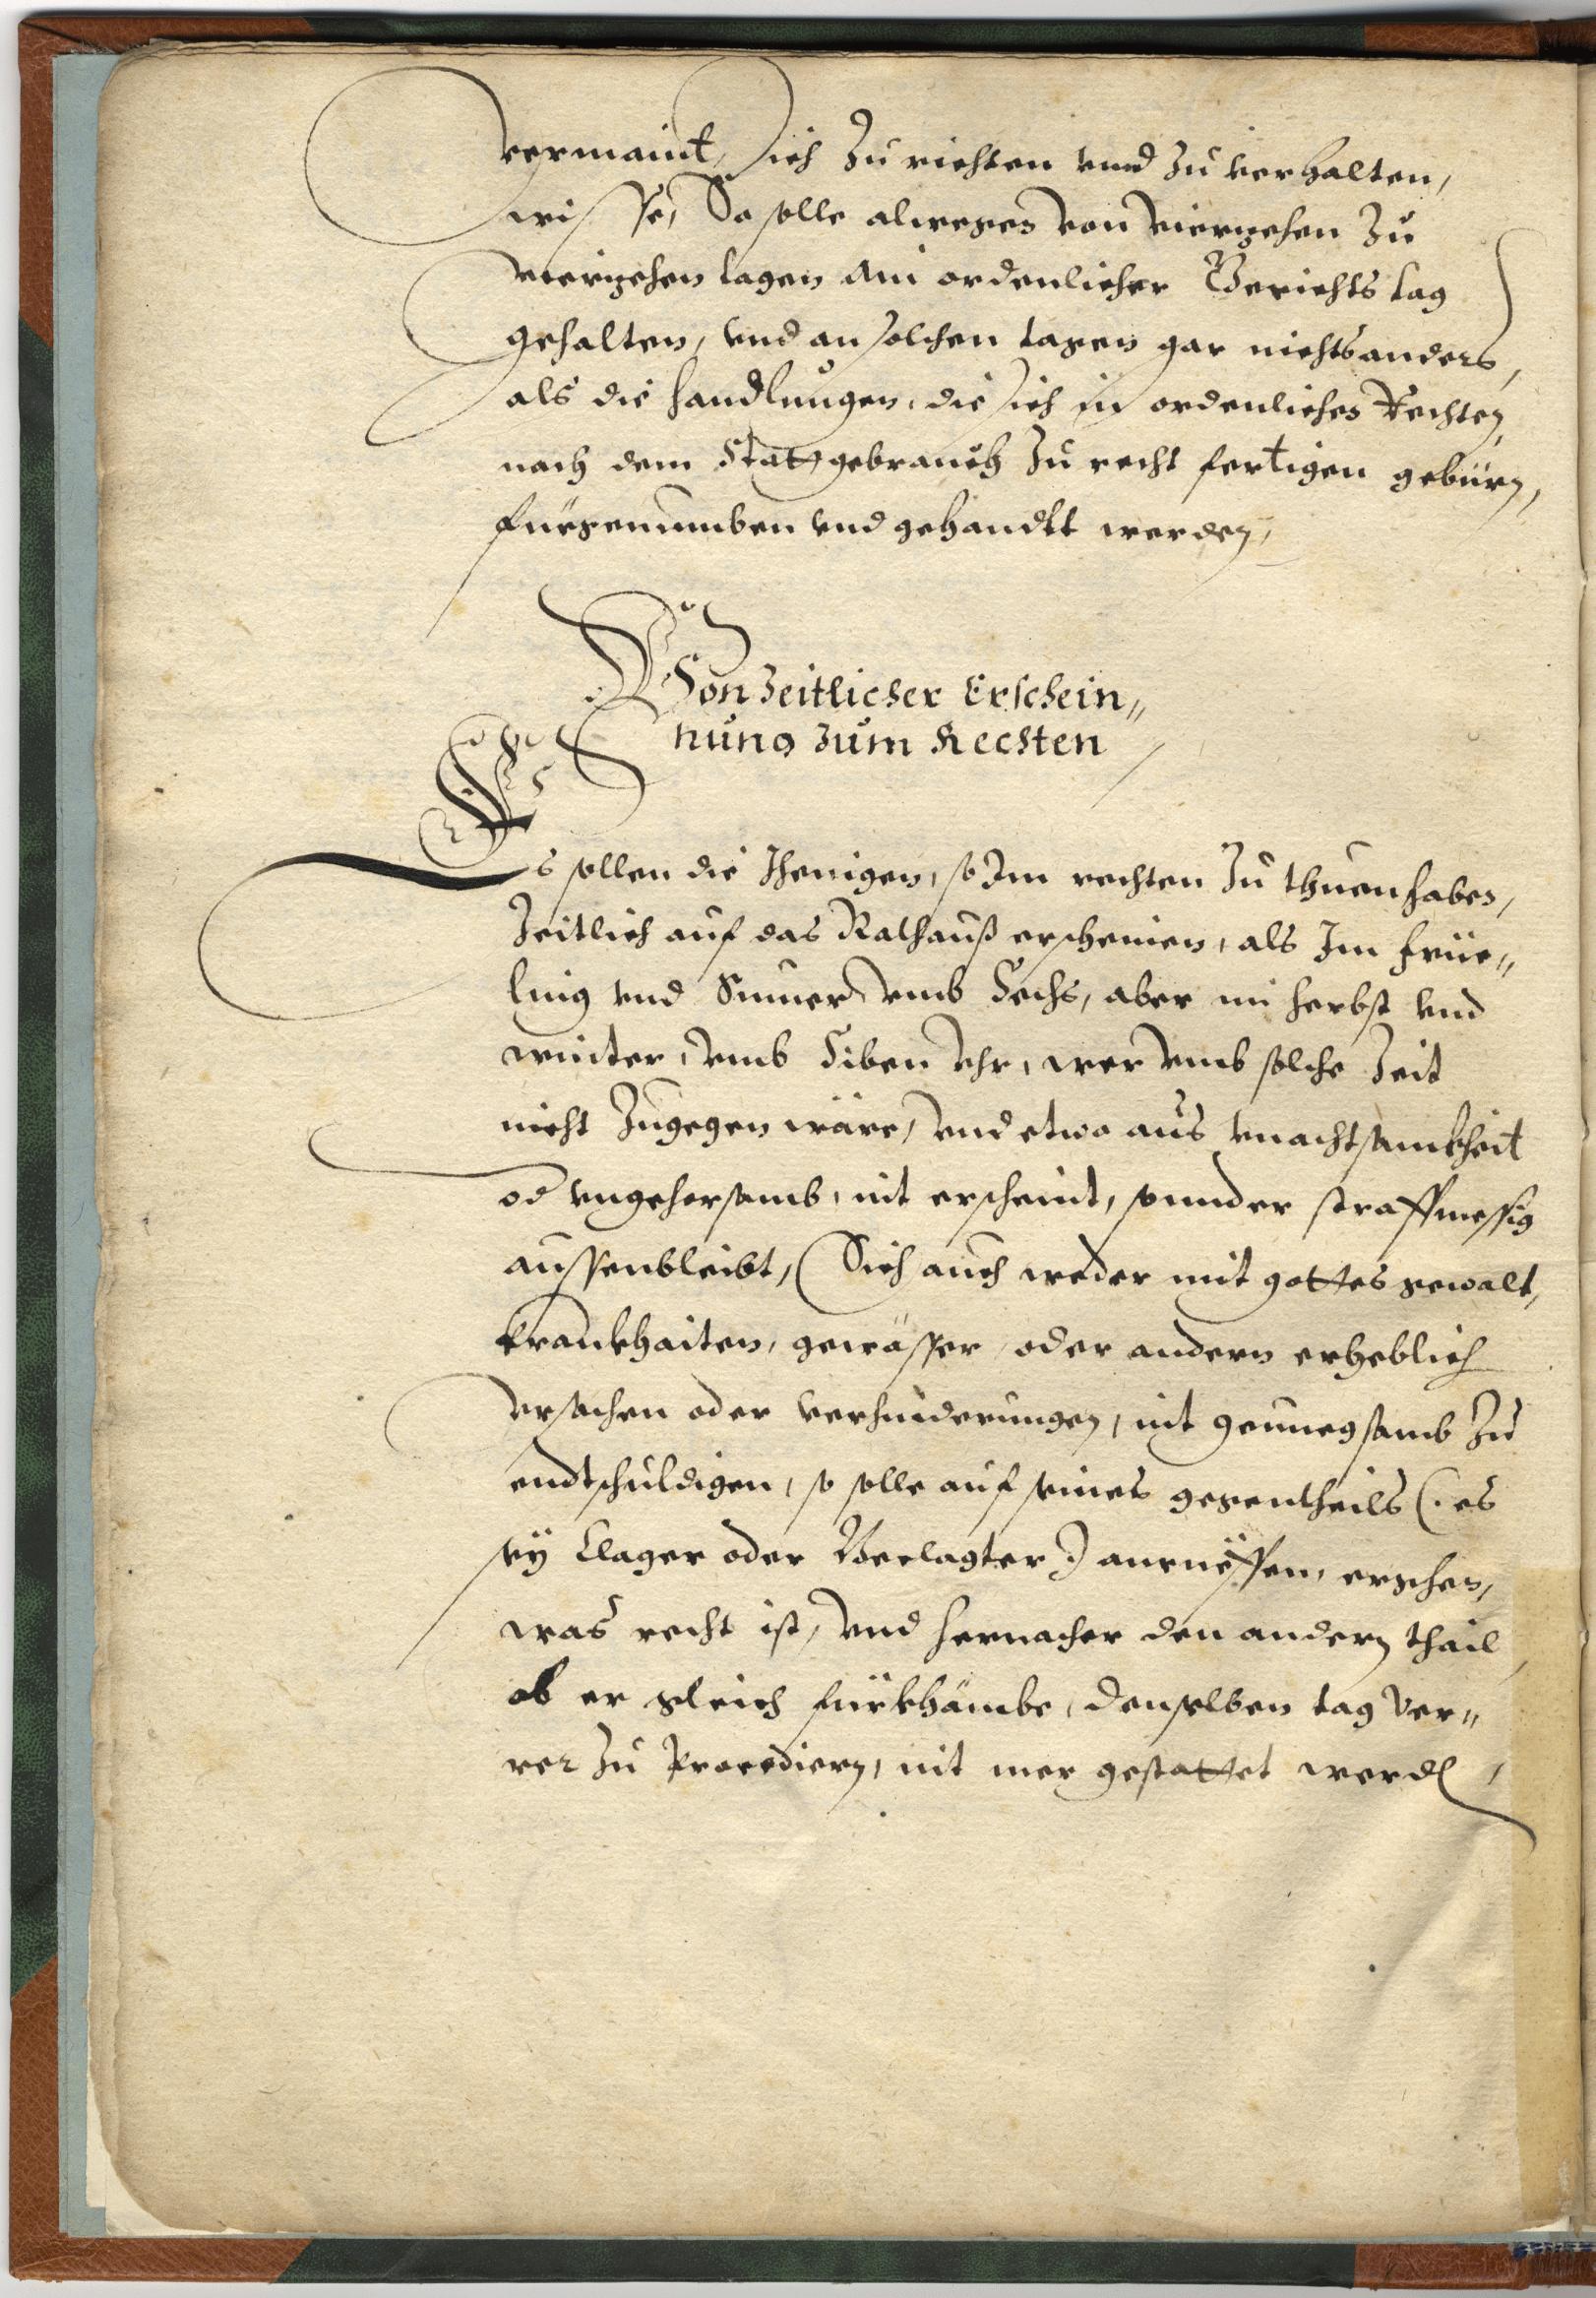 vermaint, sich Zu richten vnnd Zu verhalten,
wisse, So solle alweges von viertzehen Zu
viertzehen tagen ain ordenlicher Gerichts tag
gehalten, vnd an solchen tagen gar nichts anders,
als die handlungen, die sich in ordenliches Rechten,
nach dem Stattgebrauch Zu recht fertigen gebürn,
fürgenumben vnd gehandlt werden,
Von Zeitlicher Erschein„
nung Zum Rechten
Es
Es sollen die Jhenigen, so Im rechten Zu thuen haben,
Zeitlich auf das Rathauß erscheinen, als Im früe„
ling vnd Summer vmb Sechs, aber im herbst vnd
winter, vmb Siben Vhr, wer vmb solche Zeit
nicht Zugegen wäre, vnd etwo aus vnachtsamkheit
od vngehorsamb, nit erscheint, sonnder straffmessig
aussenbleibt, Sich auch weder mit gottes gewalt,
krankhaiten, gewässer, oder andern erheblich
vrsachen oder verhinderungen, nit genuegsamb Zu
endtschuldigen, so solle auf seines gegentheils (: es
sey Clager oder Beclagter :) anrueffen, ergehen,
was recht ist, vnd hernacher den andern thail,
ob er gleich fürkhämbe, denselben tag ver„
rer Zu Procediern, nit mer gestattet werden,